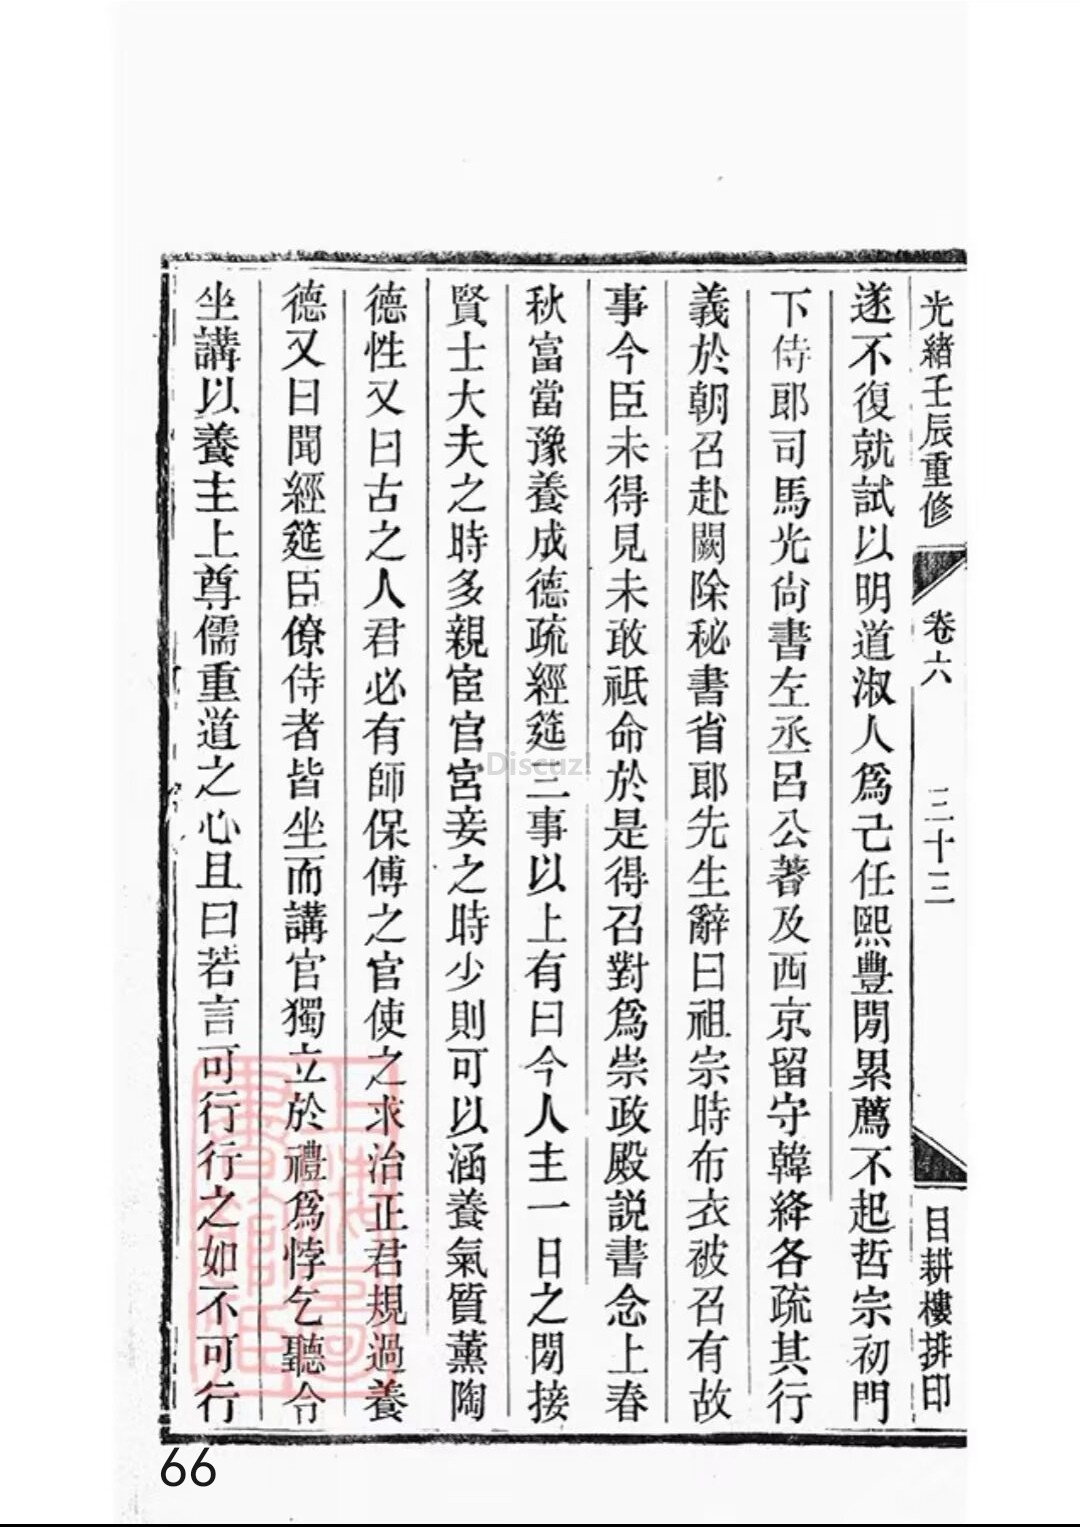 光緒壬辰重修
卷六
三十三
目耕樓排印
遂不復就試以明道淑人爲己任熙豐閒累薦不起哲宗初門
下侍郎司馬光尙書左丞呂公著及西京留守韓絳各疏其行
義於朝召赴闕除秘書省郎先生辭曰祖宗時布衣被召有故
事今臣未得見未敢祇命於是得召對爲崇政殿説書念上春
秋富當豫養成德疏經筵三事以上有曰今人主一日之閒接
賢士大夫之時多親宦官宮妾之時少則可以涵養氣質薰陶
德性又曰古之人君必有師保傅之官使之求治正君規過養
德又曰聞經筵臣僚侍者皆坐而講官獨立於禮爲悖乞聽令
坐講以養主上尊儒重道之心且曰若言可行行之如不可行
Discuz!
66